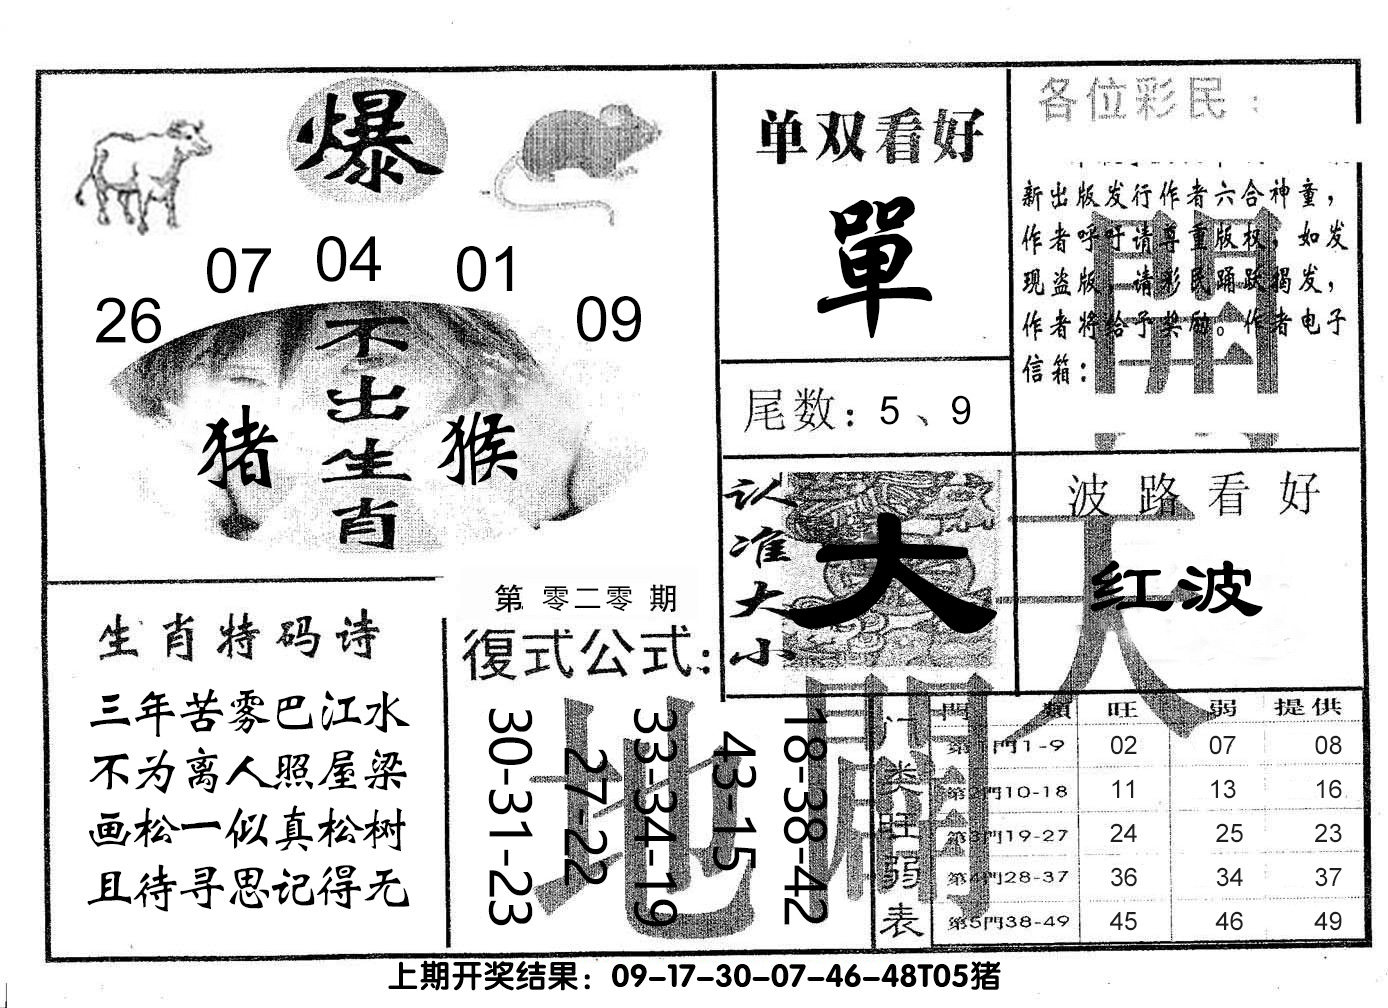 爆
07 04 01
26 09
不出生肖
猪 猴
单双看好
單
尾数：5、9
各位彩民：
新出版发行作者六合神童，
作者呼吁请尊重版权，如发
现盗版，请彩民踊跃揭发，
作者将给予奖励。作者电子
信箱：
開
认准大小
大
波路看好
红波
天
生肖特码诗
三年苦雾巴江水
不为离人照屋梁
画松一似真松树
且待寻思记得无
第 零二零 期
復式公式：
30-31-23
27-22
33-34-19
43-15
18-38-42
地
開
门类旺弱表
門 類 旺 弱 提供
第1門1-9 02 07 08
第2門10-18 11 13 16
第3門19-27 24 25 23
第4門28-37 36 34 37
第5門38-49 45 46 49
上期开奖结果：09-17-30-07-46-48T05猪